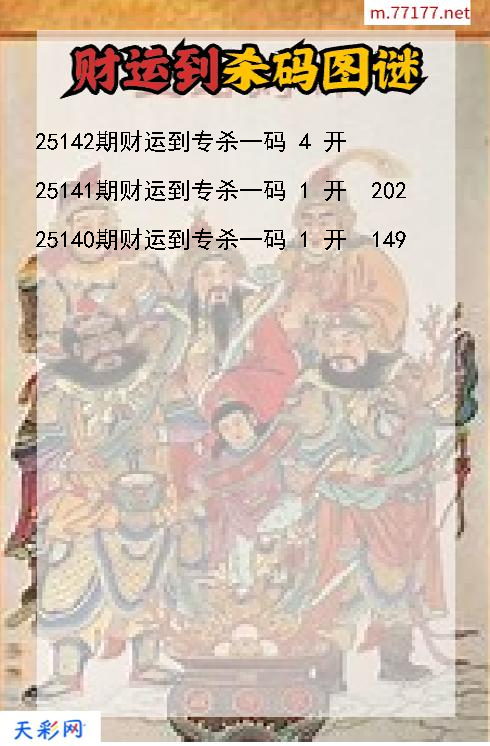 m.77177.net
财运到杀码图谜
25142期财运到专杀一码 4 开
25141期财运到专杀一码 1 开 202
25140期财运到专杀一码 1 开 149
天彩网